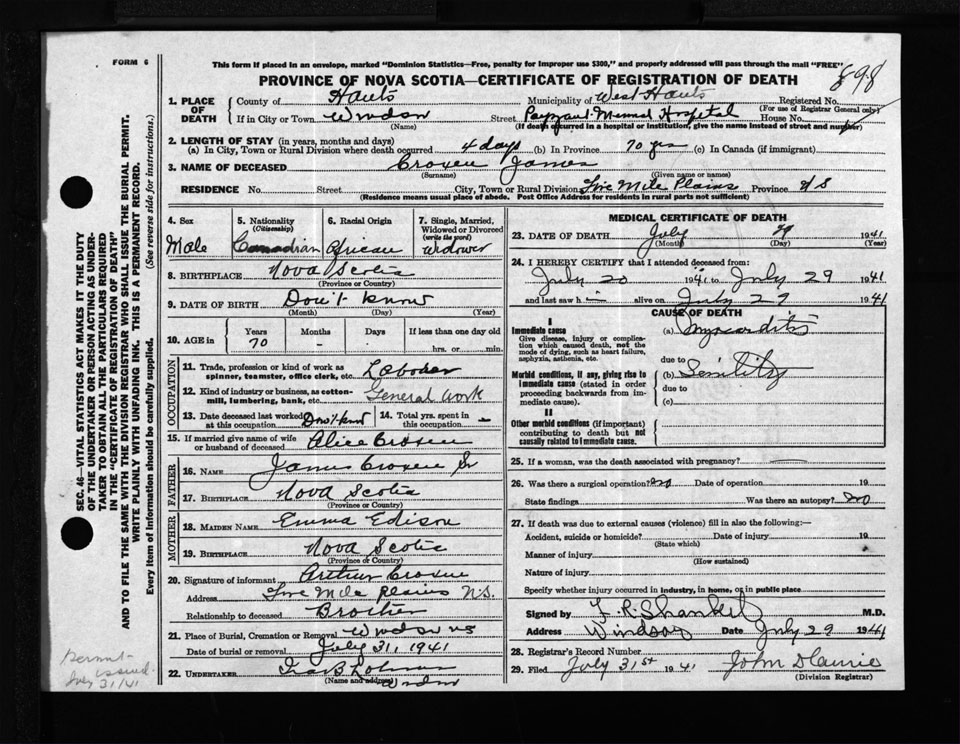 FORM 6
This form if placed in an envelope, marked "Dominion Statistics—Free, penalty for improper use $300," and properly addressed will pass through the mail "FREE"
PROVINCE OF NOVA SCOTIA—CERTIFICATE OF REGISTRATION OF DEATH
898
1. PLACE OF DEATH
County of Hants Municipality of West Hants Registered No.
(For use of Registrar General only)
If in City or Town Windsor Street Hospital House No.
(Name) (If death occurred in a hospital or institution, give the name instead of street and number)
2. LENGTH OF STAY (in years, months and days)
(a) In City, Town or Rural Division where death occurred 4 days (b) In Province 70 yrs (c) In Canada (if immigrant)
3. NAME OF DECEASED Croxen James
(Surname) (Given name or names)
RESIDENCE No. Street City, Town or Rural Division Five Mile Plains Province N S
(Residence means usual place of abode. Post Office Address for residents in rural parts not sufficient)
4. Sex Male
5. Nationality (Citizenship) Canadian
6. Racial Origin African
7. Single, Married, Widowed or Divorced (write the word) Widower
8. BIRTHPLACE Nova Scotia
(Province or Country)
9. DATE OF BIRTH Don't know
(Month) (Day) (Year)
10. AGE in Years Months Days If less than one day old
70 - - hrs. or min.
OCCUPATION
11. Trade, profession or kind of work as spinner, teamster, office clerk, etc. Laborer
12. Kind of industry or business, as cotton-mill, lumbering, bank, etc. General Work
13. Date deceased last worked at this occupation Don't know
14. Total yrs. spent in this occupation -
15. If married give name of wife or husband of deceased Alice Croxen
FATHER
16. NAME James Croxen Sr
17. BIRTHPLACE Nova Scotia
(Province or Country)
MOTHER
18. MAIDEN NAME Emma Edison
19. BIRTHPLACE Nova Scotia
(Province or Country)
20. Signature of informant Arthur Croxen
Address Five Mile Plains N.S.
Relationship to deceased Brother
21. Place of Burial, Cremation or Removal Windsor NS
Date of burial or removal July 31, 1941
22. UNDERTAKER
(Name and address) Windsor
MEDICAL CERTIFICATE OF DEATH
23. DATE OF DEATH July 29 1941
(Month) (Day) (Year)
24. I HEREBY CERTIFY that I attended deceased from:
July 20 1941 to July 29 1941
and last saw h im alive on July 29 1941
CAUSE OF DEATH
I
Immediate cause
Give disease, injury or complication which caused death, not the mode of dying, such as heart failure, asphyxia, asthenia, etc.
(a) Myocarditis
due to
Morbid conditions, if any, giving rise to immediate cause (stated in order proceeding backwards from immediate cause).
(b) Senility
due to
(c)
II
Other morbid conditions (if important) contributing to death but not causally related to immediate cause.
25. If a woman, was the death associated with pregnancy?
26. Was there a surgical operation? no Date of operation 19
State findings Was there an autopsy? no
27. If death was due to external causes (violence) fill in also the following:—
Accident, suicide or homicide? Date of injury 19
(State which)
Manner of injury
(How sustained)
Nature of injury
Specify whether injury occurred in industry, in home, or in public place
Signed by M.D.
Address Windsor Date July 29 1941
28. Registrar's Record Number
29. Filed July 31st 1941
(Division Registrar)
SEC. 46—VITAL STATISTICS ACT MAKES IT THE DUTY
OF THE UNDERTAKER OR PERSON ACTING AS UNDER-
TAKER TO OBTAIN ALL THE PARTICULARS REQUIRED
IN THE "CERTIFICATE OF REGISTRATION OF DEATH"
AND TO FILE THE SAME WITH THE DIVISION REGISTRAR WHO SHALL ISSUE THE BURIAL PERMIT.
WRITE PLAINLY WITH UNFADING INK. THIS IS A PERMANENT RECORD.
Every item of information should be carefully supplied. (See reverse side for instructions.)
Permit
issued
July 31/41